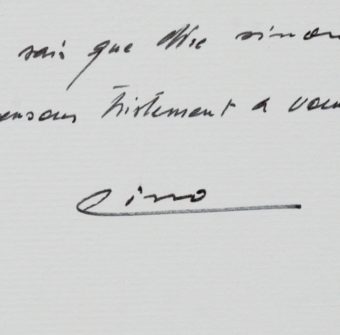 sais que dire sinon
pensons tristement a vous
Cino